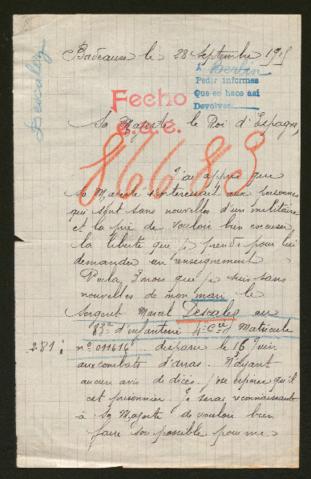 Descalis
le 28 Septembre 1915
A Berlin
Pedir informes
Que se hace así
Devolver
Fecho
g.a.e.
Sa Majesté le Roi d'Espagne,
86683
J'ai appris que
Sa Majesté s'interessait aux personnes
qui sont sans nouvelles d'un militaire
et la prie de vouloir bien excuser
la liberté que je prends pour lui
demander un renseignement
Voila 3 mois que je suis sans
nouvelles de mon mari le
Sergent Marcel Descalis au
83e d'infanterie 4e Cie Matricule
281: n° 011414 disparu le 16 Juin
aux combats d'Arras. N'ayant
aucun avis de décès j'ose espérer qu'il
est prisonnier je serai reconnaissante
à Sa Majesté de vouloir bien
faire son possible pour me